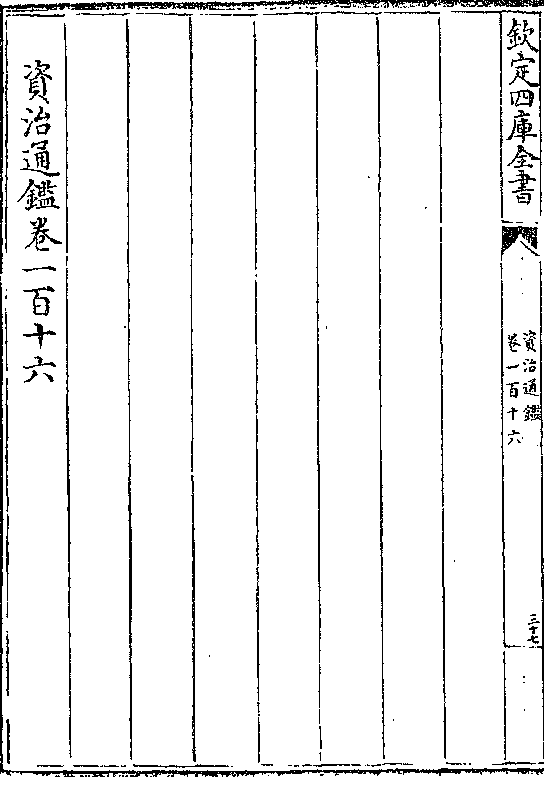 欽定四庫全書
資治通鑑
卷一百十六
三十七
資治通鑑卷一百十六